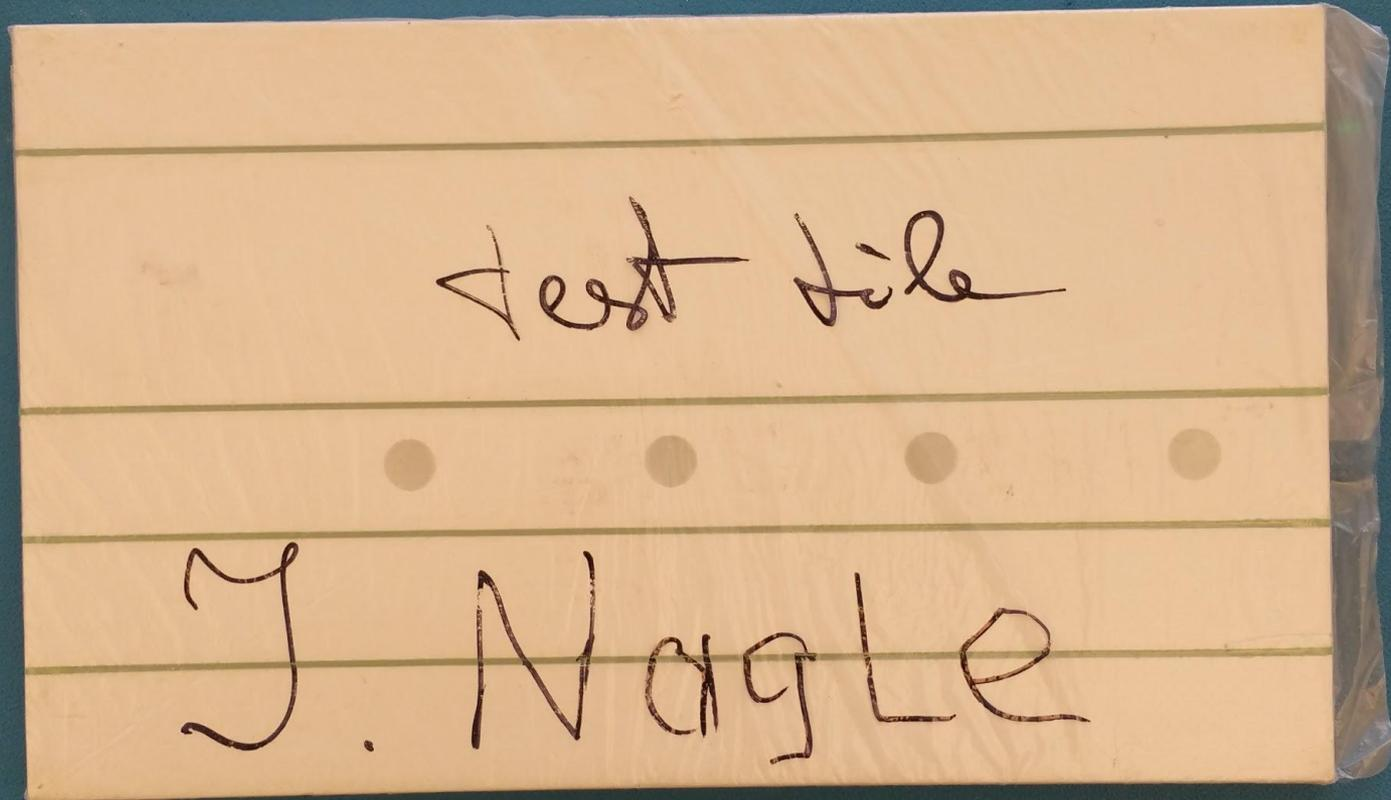 test tile
J. Nagle